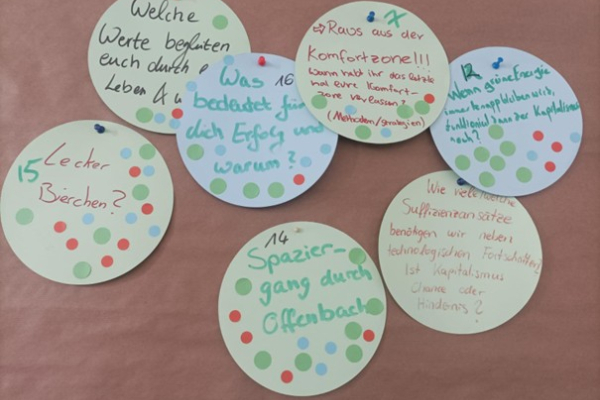 Welche
Werte begleiten
euch durch
Leben &
16
Was
bedeutet für
dich Erfolg und
warum?
7
⇨ Raus aus der
Komfortzone!!!
Wann habt ihr das letzte
mal eure Komfort-
zone verlassen?
(Methoden/Strategien)
12
Wenn grüne Energie
immer knapp bleiben wird,
funktioniert dann der Kapitalismus
noch?
15
Lecker
Bierchen?
14
Spazier-
gang durch
Offenbach
Wie viele/welche
Suffizienzansätze
benötigen wir neben
technologischen Fortschritten?
Ist Kapitalismus
Chance oder
Hindernis?